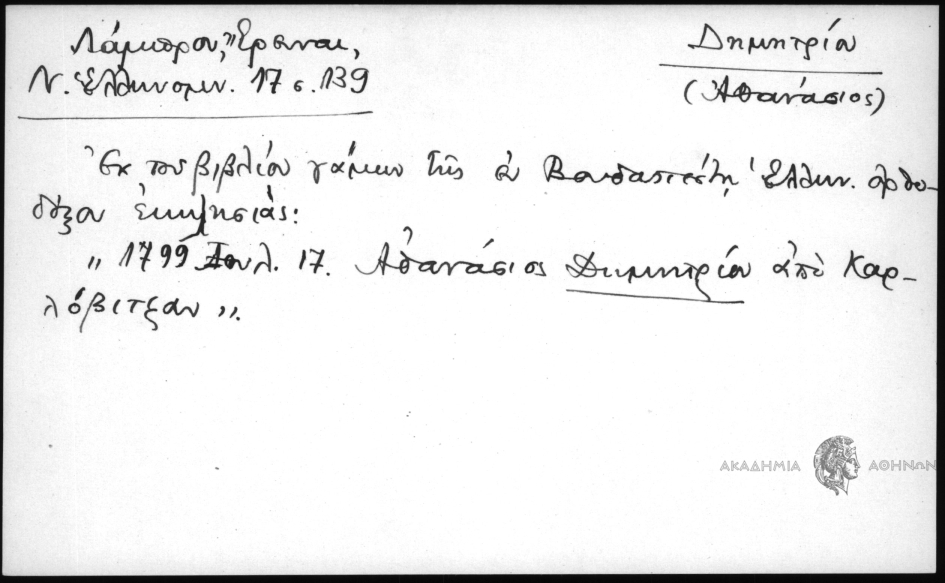 Λάμπρου, Ἔρευναι,
Ν. Ἑλληνομν. 17 σ. 139
Δημητρίου
(Ἀθανάσιος)
Ἐκ τοῦ βιβλίου γάμων τῆς ἐν Βουδαπέστῃ Ἑλλην. ὀρθο-
δόξου ἐκκλησίας:
„ 1799 Ἰουλ. 17. Ἀθανάσιος Δημητρίου ἀπὸ Καρ-
λόβιτζαν „.
ΑΚΑΔΗΜΙΑ ΑΘΗΝΩΝ